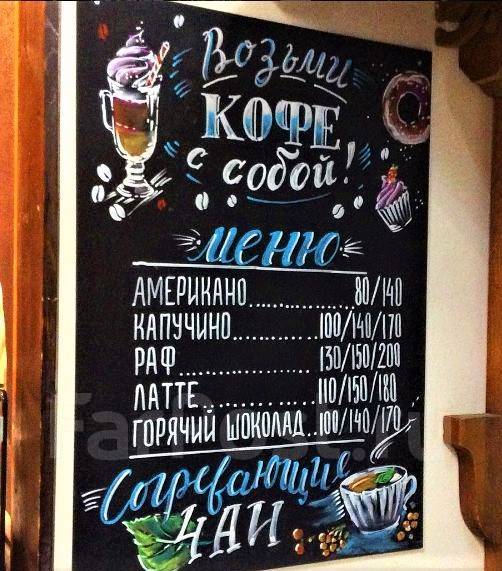 Возьми
КОФЕ
с собой!
меню
АМЕРИКАНО..............80/140
КАПУЧИНО............100/140/170
РАФ....................130/150/200
ЛАТТЕ.................110/150/180
ГОРЯЧИЙ ШОКОЛАД..100/140/170
Согревающие
ЧАИ
FarPost.ru